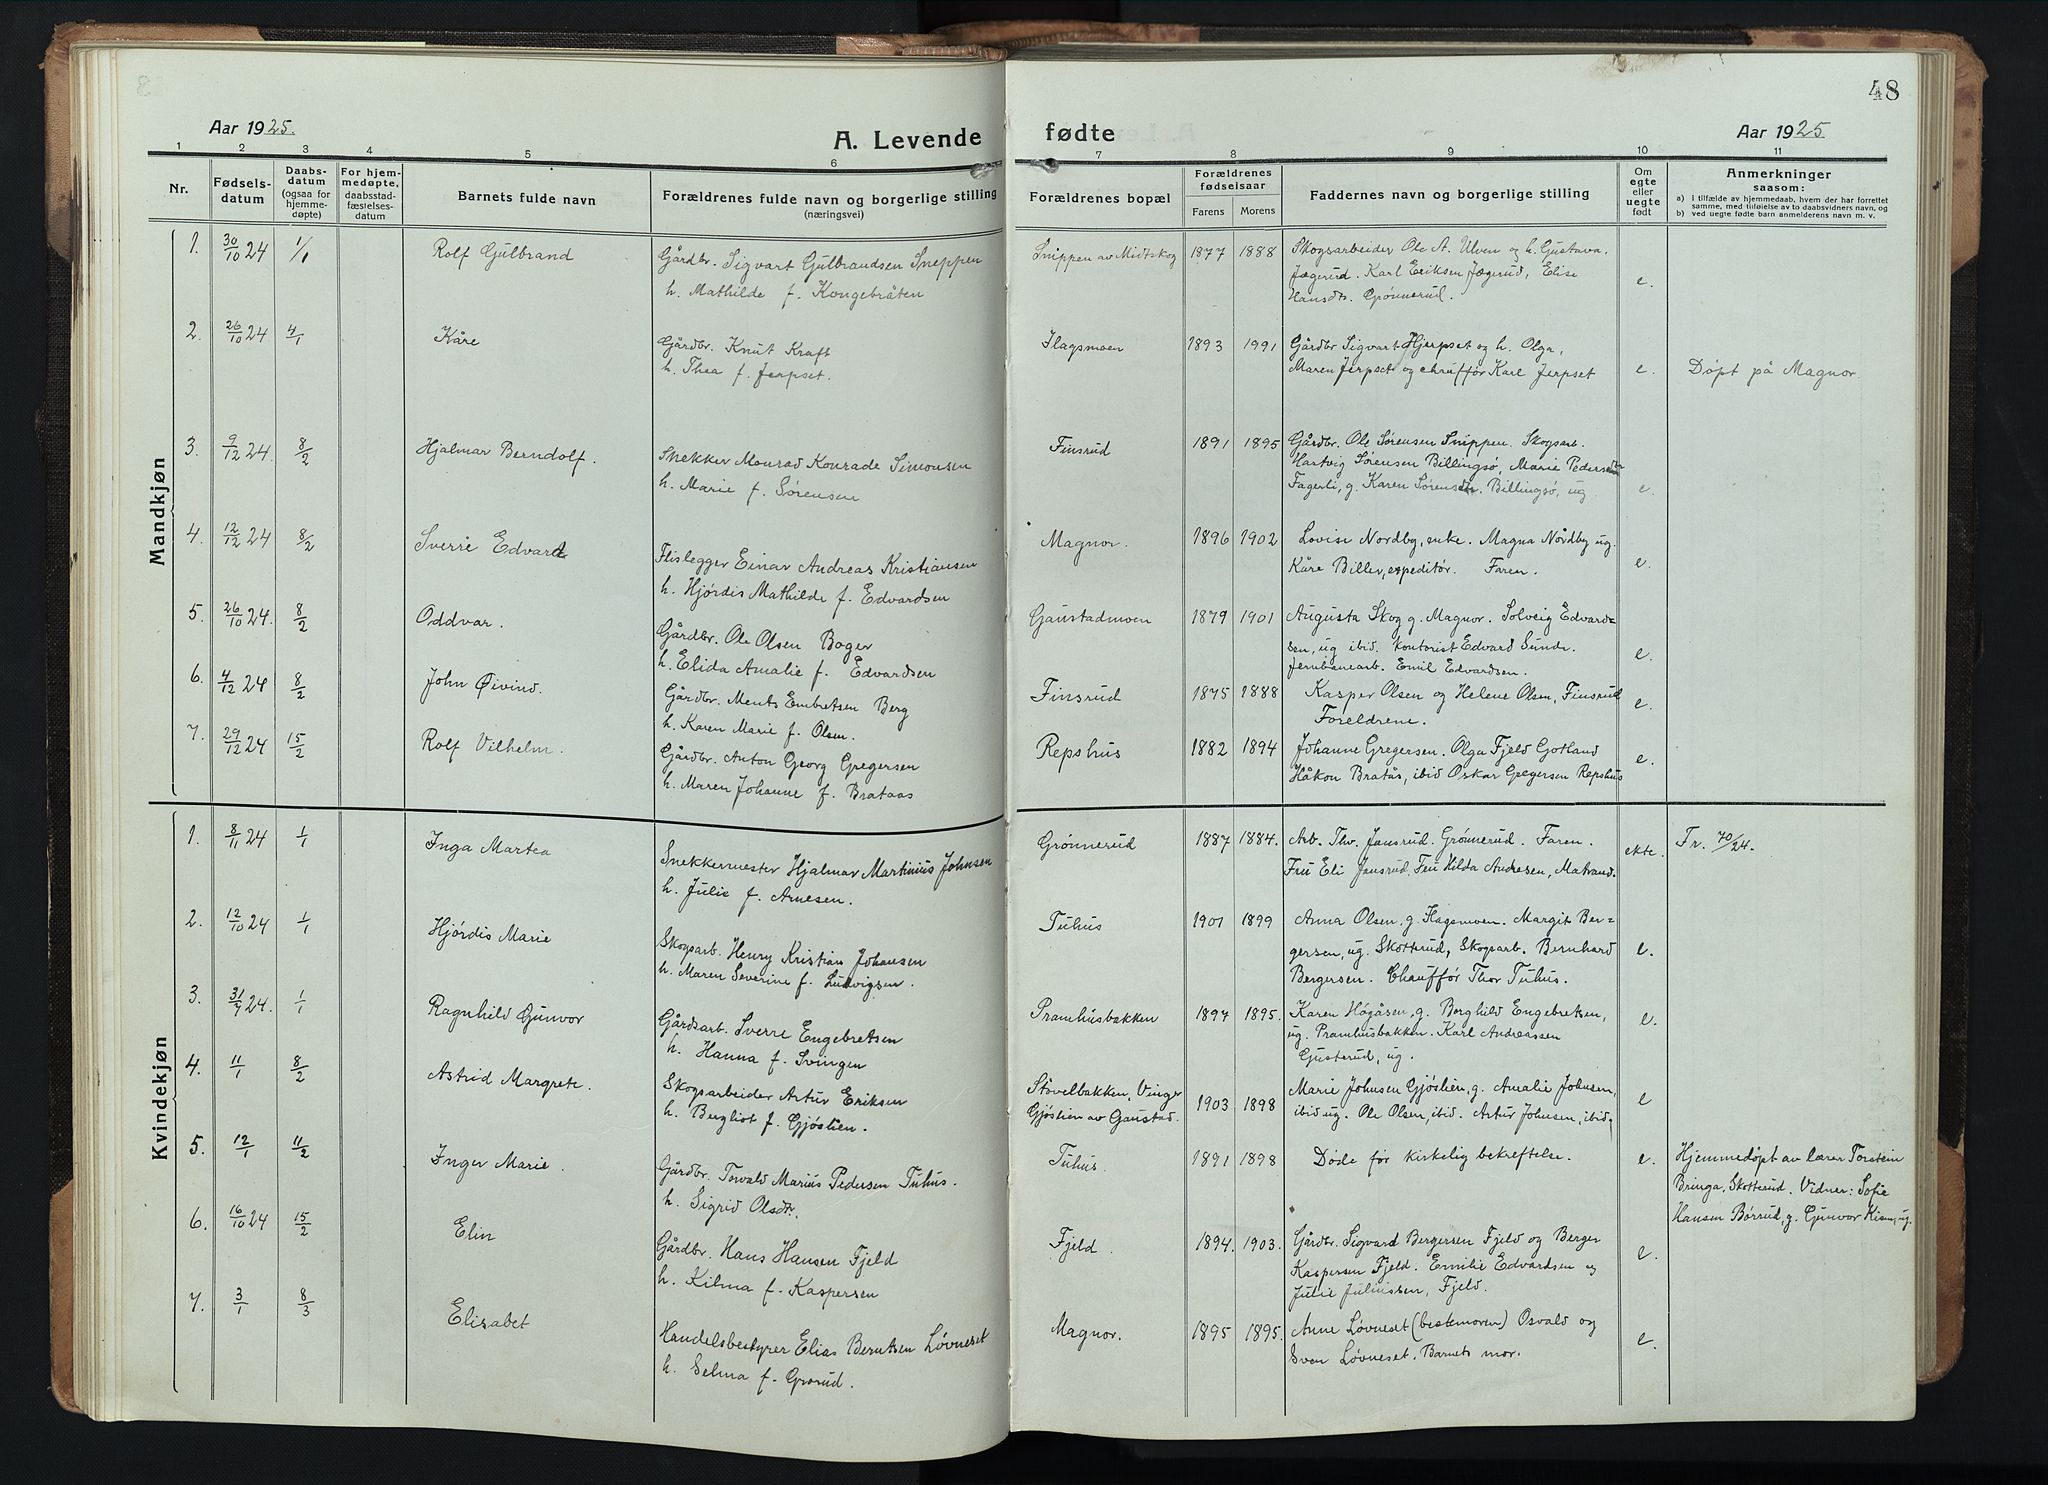 48
Aar 1925.
A. Levende fødte
Aar 1925
1 2 3 4 5 6 7 8 9 10 11
Nr.
Fødselsdatum
Daabsdatum (ogsaa for hjemmedøpte)
For hjemmedøpte, daabsstadfæstelsesdatum
Barnets fulde navn
Forældrenes fulde navn og borgerlige stilling (næringsvei)
Forældrenes bopæl
Forældrenes fødselsaar
Farens Morens
Faddernes navn og borgerlige stilling
Om egte eller uegte født
Anmerkninger saasom:
a) i tilfælde av hjemmedaab, hvem der har forrettet samme, med tilføielse av to daabsvidners navn, og
b) ved uegte fødte barn anmelderens navn m. v.
Mandkjøn
1. 30/10 24 1/1 Rolf Gulbrand
Gårdbr. Sigvart Gulbrandsen Sneppen
h. Mathilde f. Kongebråten
Snippen av Midtskog 1877 1888
Skogsarbeider Ole A. Ulven og h. Gustava.
Jægerud. Karl Eriksen Jægerud, Elise
Hansdt. Grønnerud.
e.
2. 26/10 24 4/1 Kåre
Gårdbr. Knut Kraft
h. Thea f. Jerpset.
Flagsmoen 1893 1991
Gårdbr Sigvart Hjerpset og h. Olga,
Maren Jerpset og chauffør Karl Jerpset
e. Døpt på Magnor.
3. 9/12 24. 8/2 Hjalmar Berndolf.
Snekker Monrad Konrade Simonsen
h. Marie f. Sørensen
Finsrud 1891 1895
Gårdbr. Ole Sørensen Snippen. Skogsarb.
Hartvig Sørensen Billingsø, Marie Pedersdtr
Fagerli, g. Karen Sørensdtr. Billingsø, ug
e.
4. 12/12 24 8/2 Sverre Edvard
Flislegger Einar Andreas Kristiansen
h. Hjørdis Mathilde f. Edvardsen
Magnor. 1896 1902
Lovise Nordby, enke. Magna Nordby ug.
Kåre Biller, expeditør. Faren.
e.
5. 26/10 24. 8/2 Oddvar.
Gårdbr. Ole Olsen Boger
h. Elida Amalie f. Edvardsen
Gaustadmoen 1879 1901
Augusta Skog g. Magnor. Solveig Edvard-
sen, ug ibid. Kontorist Edvard Sunde.
Jernbanearb. Emil Edvardsen.
e.
6. 4/12 24 8/2 John Øivind.
Gårdbr. Ments Embretsen Berg
h. Karen Marie f. Olsen.
Finsrud 1875 1888
Kasper Olsen og Helene Olsen, Finsrud
Foreldrene.
e.
7. 29/12 24 15/2 Rolf Vilhelm.
Gårdbr. Anton Georg Gregersen
h. Maren Johanne f. Brataas
Repshus 1882 1894
Johanne Gregersen. Olga Fjeld Gotland
Håkon Bratås, ibid Oskar Gregersen Repshus
e.
Kvindekjøn
1. 8/11 24 1/1 Inga Martea
Snekkermester Hjalmar Martinius Johnsen
h. Julie f. Arnesen.
Grønnerud 1887 1884.
Arb. Thv. Jansrud. Grønnerud. Faren.
Fru Eli Jansrud, Fru Hilda Andresen, Matrand.
ekte. Fr. 70/24.
2. 12/10 24 1/1 Hjørdis Marie
Skogsarb. Henry Kristian Johansen
h. Maren Severine f. Ludvigsen.
Tuhus 1901 1899
Anna Olsen, g Flagsmoen. Margit Ber-
gersen, ug. Skotterud, Skogsarb. Bernhard
Bergersen. Chauffør Thor Tuhus.
e.
3. 31/7 24. 1/1 Ragnhild Gunvor
Gårdsarb. Sverre Engebretsen
h. Hanna f. Svingen
Pramhusbakken 1897 1895.
Karen Högåsen, g. Borghild Engebretsen,
ug. Pramhusbakken. Karl Andreassen
Gusterud, ug.
e.
4. 11/1 8/2 Astrid Margrete.
Skogsarbeider Artur Eriksen
h. Bergliot f. Gjøslien.
Støvelbakken, Vinger
Gjøslien av Gaustad. 1903 1898
Marie Johnsen Gjøslien, g. Amalie Johnsen,
ibid ug. Ole Olsen, ibid. Artur Johnsen, ibid.
e
5. 12/1 11/2 Inger Marie.
Gårdbr. Torvald Marius Pedersen Tuhus.
h. Sigrid Olsdtr.
Tuhus. 1891 1898
Døde før kirkelig bekreftelse.
e. Hjemmedøpt av lærer Torstein
Bringa, Skotterud. Vidner: Sofie
Hansen Børrud, g. Gunvor Kisen, ug.
6. 16/10 24 15/2 Elin
Gårdbr. Hans Hansen Fjeld
h. Kilma f. Kaspersen
Fjeld. 1894. 1903.
Gårdbr. Sigvard Bergersen Fjeld og Berger
Kaspersen Fjeld. Emilie Edvardsen og
Julie Juliussen, Fjeld.
e.
7. 3/1 8/3 Elisabet
Handelsbestyrer Elias Berntsen Løvneset
h. Selma f. Grorud.
Magnor. 1895 1895.
Anne Løvneset (bestemoren) Osvald og
Sven Løvneset. Barnets mor.
e.